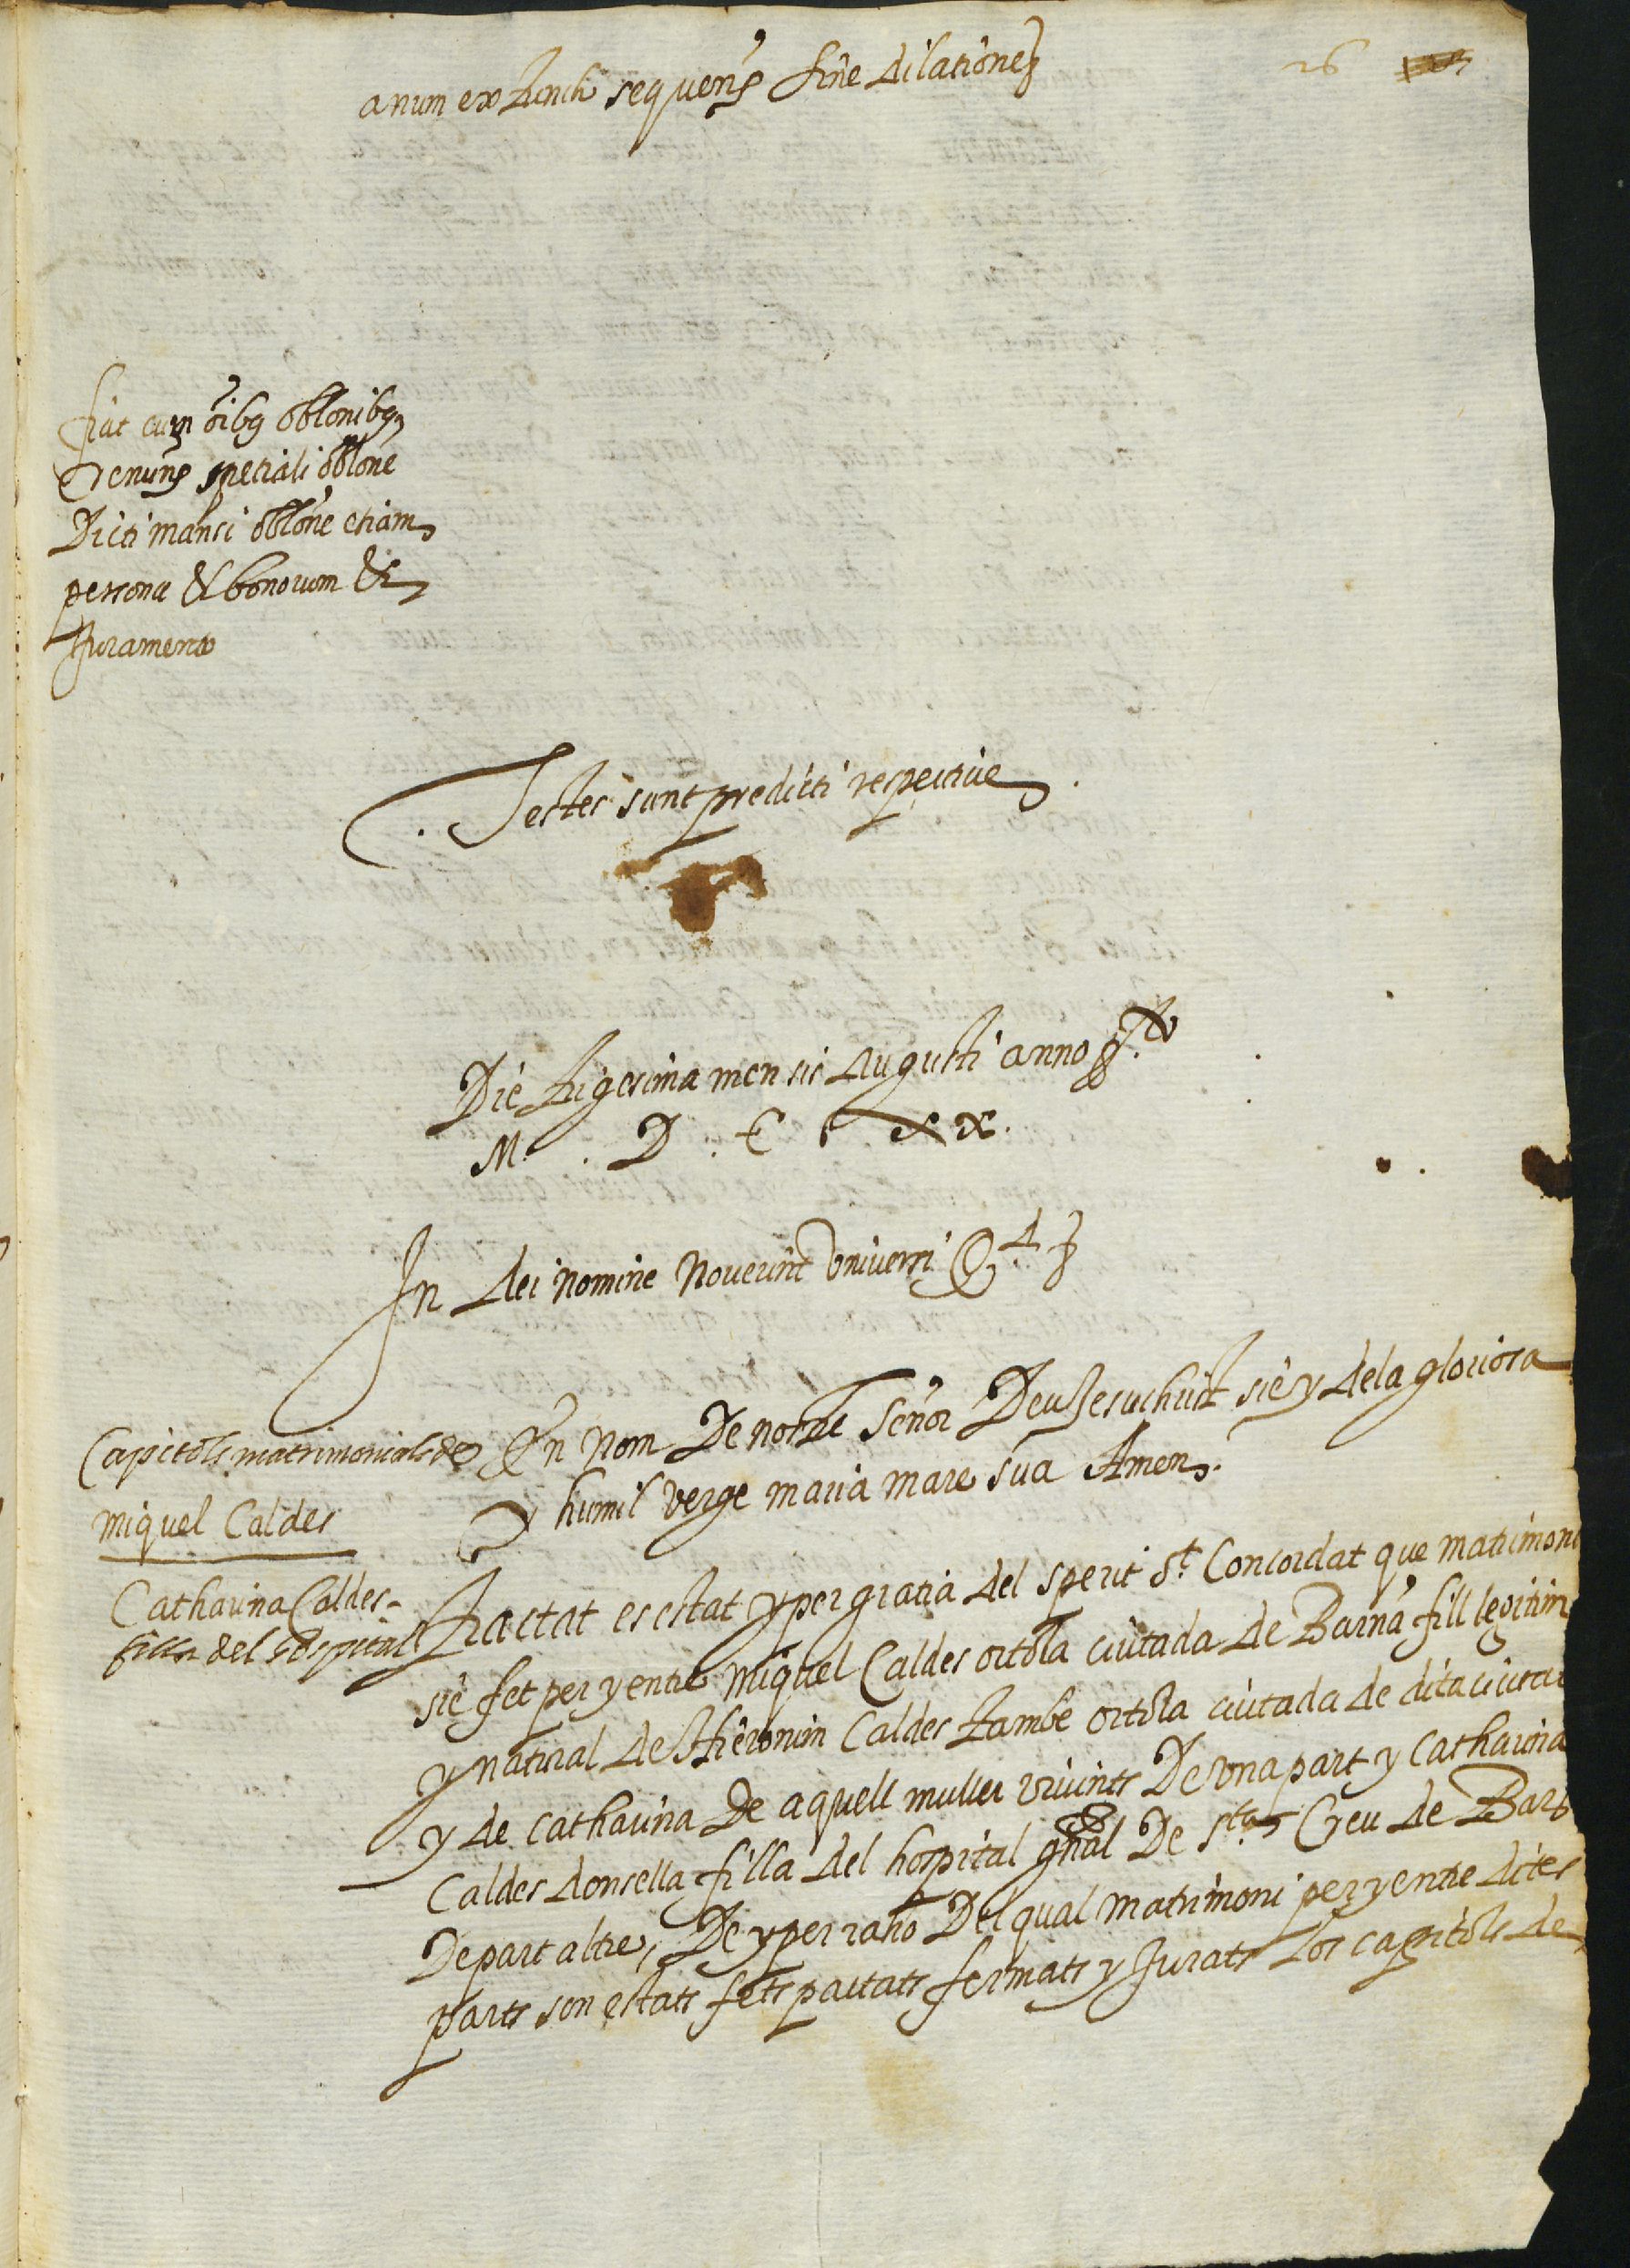 anum ex tunch sequens sine dilatione
26
fiat cum oibq oblonibq
Renuns spetiali oblone
Dicti mansi oblone etiam
persona & bonorum &
Jurament
Testes sunt predicti respective
Die Vigesima mensis Augusti anno
M. D. C XX.
In dei nomine Noverint Universi Qd
Capitols matrimonials de
miquel Caldes
Catharina Caldes
filla del Hospital
En Nom De nostre Señor Deu Jesuchrist sie y dela gloriosa
y humil verge maria mare sua Amen.
Tractat es estat y per gratia del sperit St Concordat que matrimoni
sie fet per y entre miquel Caldes ortola ciutada de Barna fill legitim
y natural de Hieronim Caldes tambe ortola ciutada de dita ciutat
y de Catharina De aquell muller vivints De una part y Catharina
Caldes donsella filla del hospital gñal De Sta Creu de Bar
De part altre, De y per raho Del qual matrimoni per y entre dites
parts son estats fets pactats fermats y Jurats los capitols de